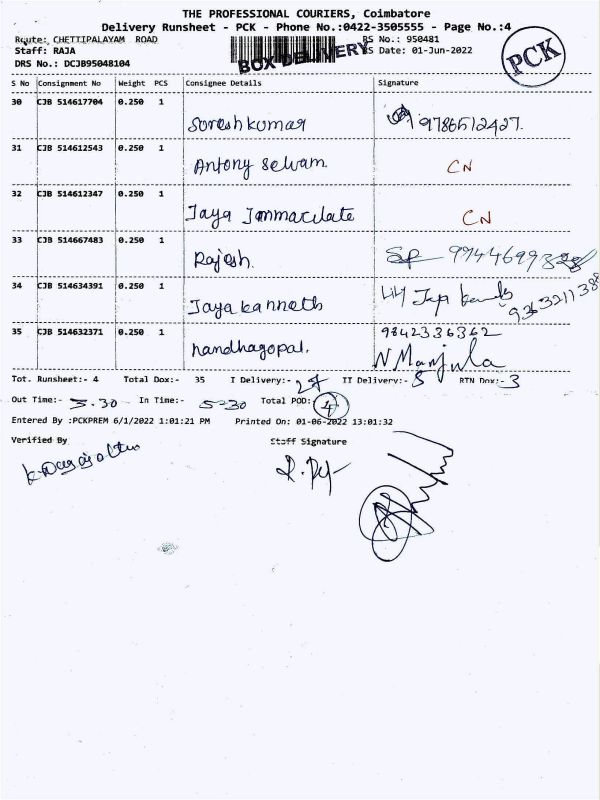 THE PROFESSIONAL COURIERS, Coimbatore
Delivery Runsheet - PCK - Phone No.:0422-3505555 - Page No.:4
Route: CHETTIPALAYAM ROAD RS No.: 950481
Staff: RAJA BOX DELIVERY RS Date: 01-Jun-2022 PCK
DRS No.: DCJB95048104
S No Consignment No Weight PCS Consignee Details Signature
30 CJB 514617704 0.250 1
Sureshkumar 9786512427.
31 CJB 514612543 0.250 1
Antony selvam CN
32 CJB 514612347 0.250 1
Jaya Immaculate CN
33 CJB 514667483 0.250 1
Rajesh.
34 CJB 514634391 0.250 1
Jayakannath
35 CJB 514632371 0.250 1 9842336362
nandhagopal. N Manjula
Tot. Runsheet:- 4 Total Dox:- 35 I Delivery:- 27 II Delivery:- 5 RTN Dox:- 3
Out Time:- 3.30 In Time:- 5-30 Total POD: 4
Entered By :PCKPREM 6/1/2022 1:01:21 PM Printed On: 01-06-2022 13:01:32
Verified By Staff Signature